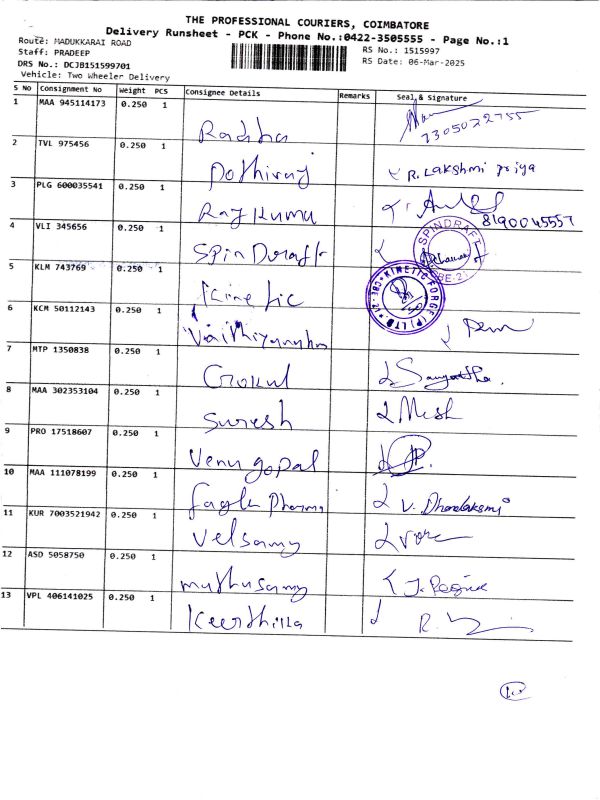 THE PROFESSIONAL COURIERS, COIMBATORE
Delivery Runsheet - PCK - Phone No.:0422-3505555 - Page No.:1
Route: MADUKKARAI ROAD
RS No.: 1515997
Staff: PRADEEP
RS Date: 06-Mar-2025
DRS No.: DCJB151599701
Vehicle: Two Wheeler Delivery
S No Consignment No Weight PCS Consignee Details Remarks Seal & Signature
1 MAA 945114173 0.250 1 Radha
2 TVL 975456 0.250 1 Pothiraj R. Lakshmi Priya
3 PLG 600035541 0.250 1 Raj Kumar 8190045557
4 VLI 345656 0.250 1 SPINDRAFT
5 KLM 743769 0.250 1 Kinetic KINETIC FORGE (P) LTD CBE-21
6 KCM 50112143 0.250 1
7 MTP 1350838 0.250 1 Gokul
8 MAA 302353104 0.250 1 Suresh
9 PRO 17518607 0.250 1 Venu gopal
10 MAA 111078199 0.250 1 Eagle Pharma V. Dhanalakshmi
11 KUR 7003521942 0.250 1 Velsamy
12 ASD 5058750 0.250 1 muthusamy
13 VPL 406141025 0.250 1 Keerthika